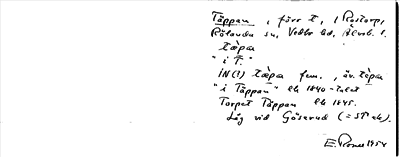 Täppan, förr t., i Rostorp,
Rölanda sn, Vedbo hd, Älvsb. l.
tæpa
"i T."
iN(!) tæpa fem., äv. tepa
"i Täppan" lk 1840-talet
Torpet Täppan lk 1845.
Låg vid Göserud (= ST ek).
E. 1954